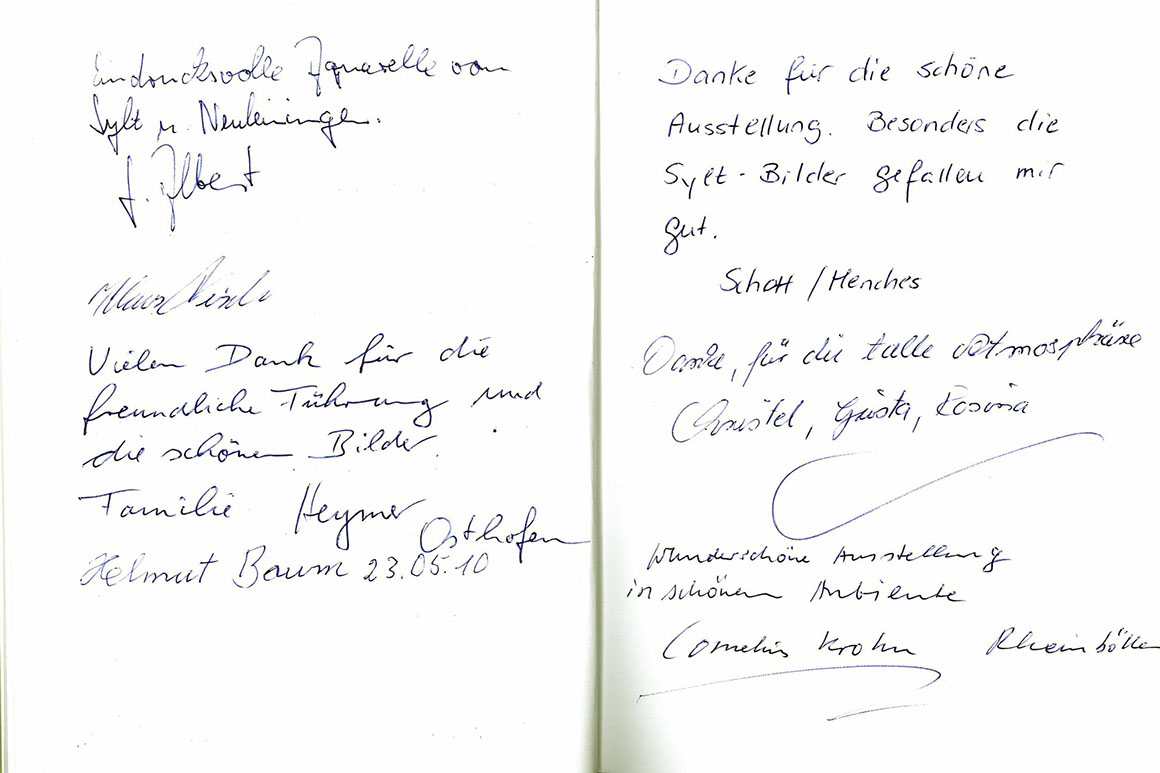 Eindrucksvolle Aquarelle von
Sylt u. Neuleiningen.
J. Albert
Klaus
Vielen Dank für die
freundliche Führung und
die schönen Bilder.
Familie Heymer
Osthofen
Helmut Baum 23.05.10
Danke für die schöne
Ausstellung. Besonders die
Sylt-Bilder gefallen mir
gut.
Schott / Menches
Danke, für die tolle Atmosphäre
Christel, Gusta, Rosina
Wunderschöne Ausstellung
in schönem Ambiente
Cornelius Krohn Rheinböllen